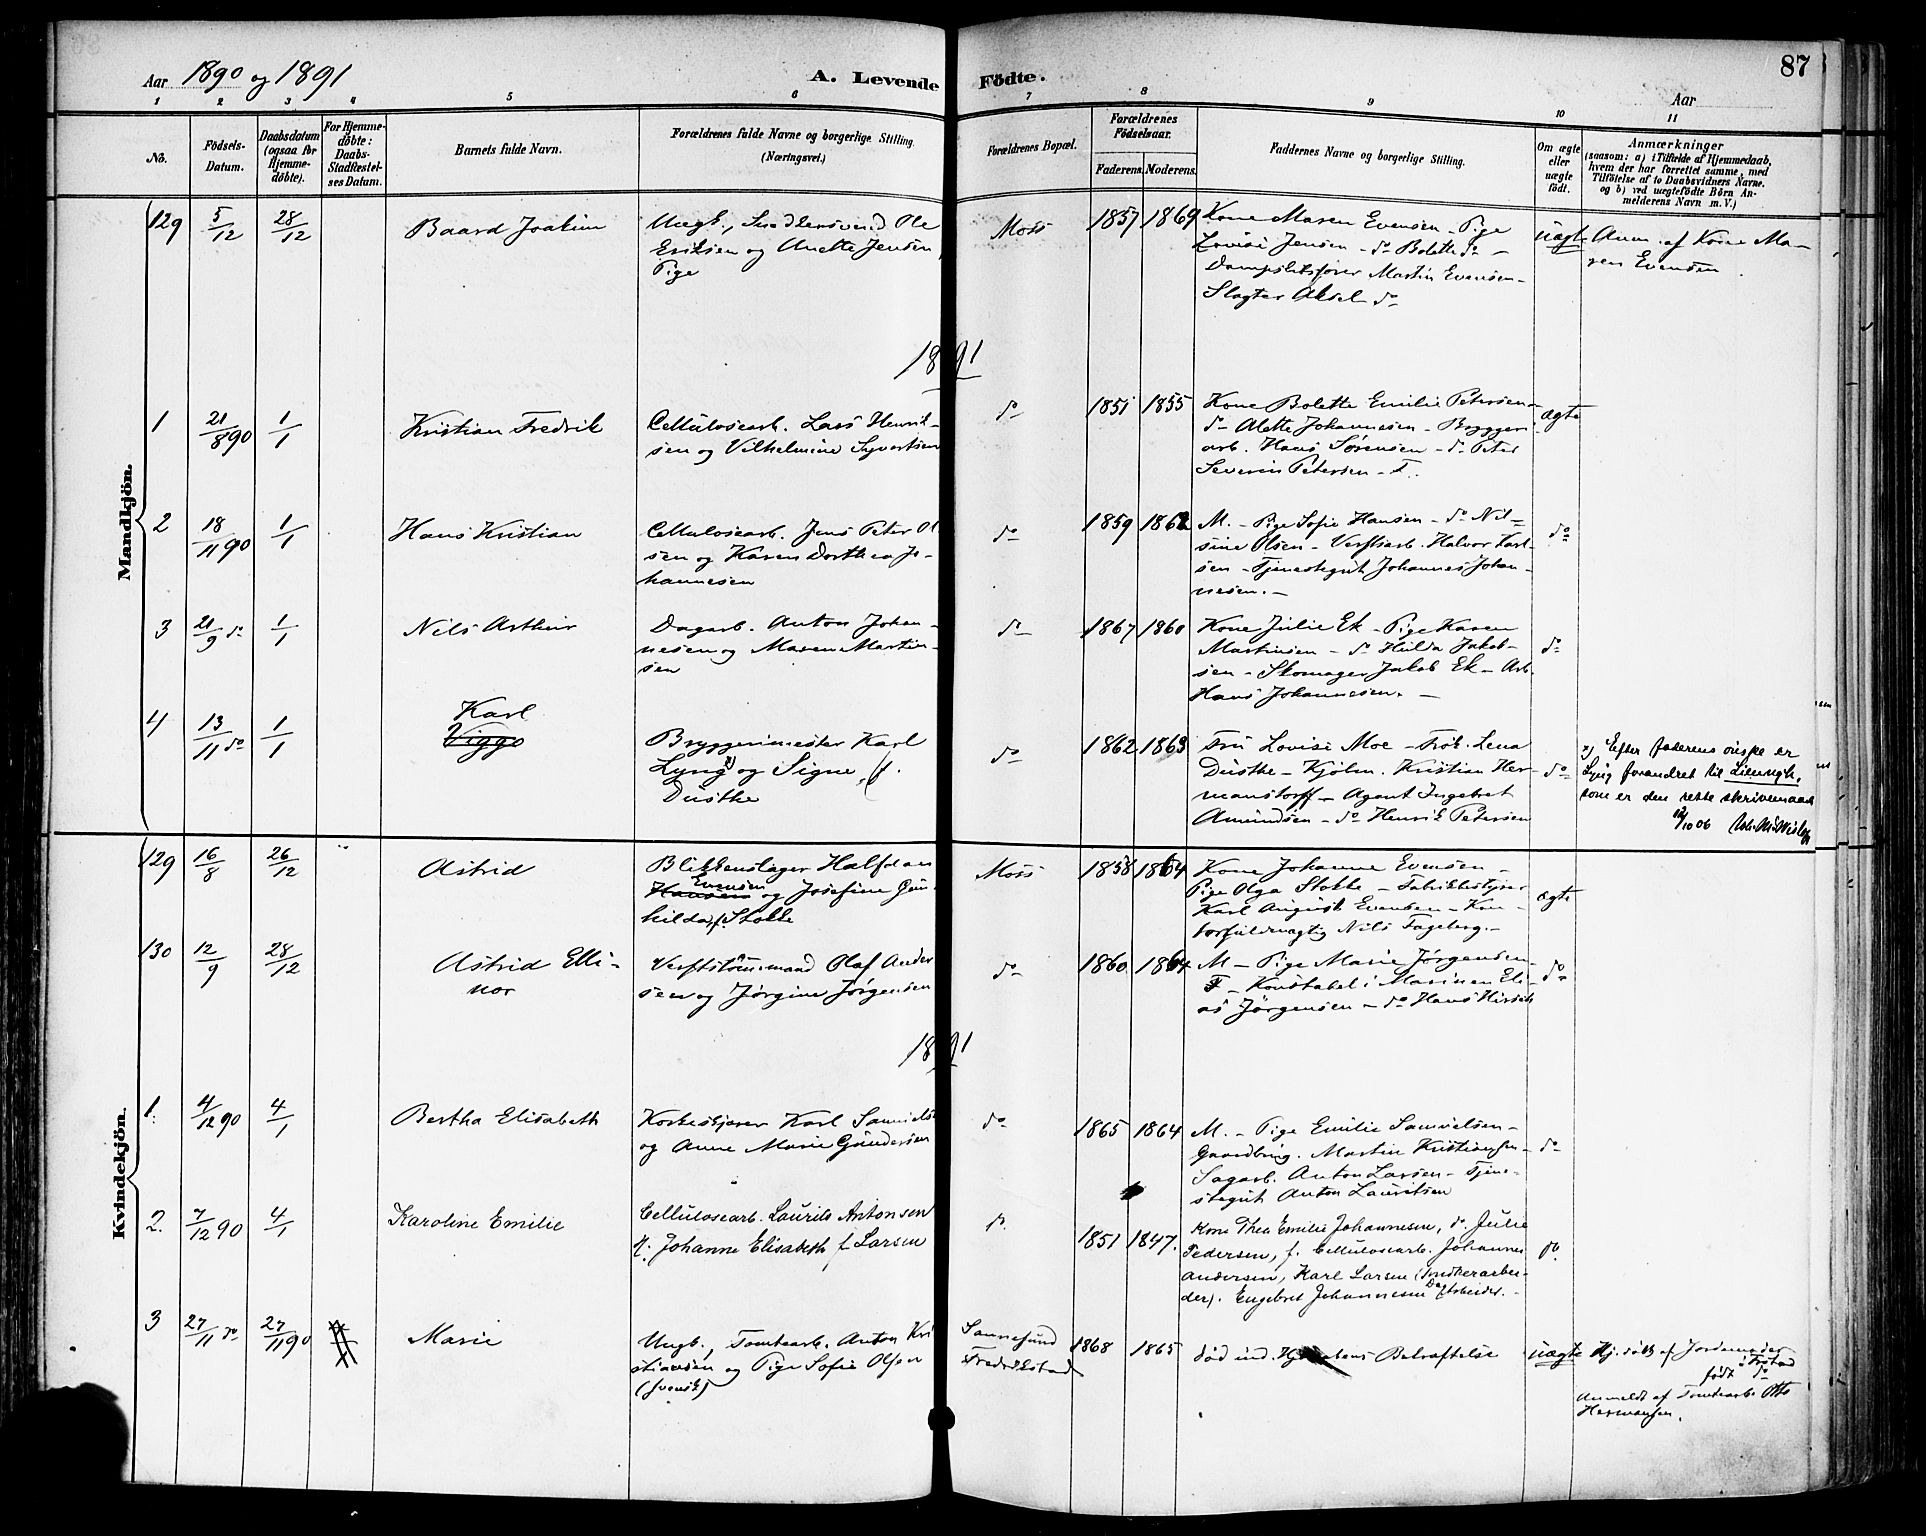 Aar 1890 og 1891
A. Levende Födte.
87
Aar
1 2 3 4 5 6 7 8 9 10 11
No.
Födsels-
Datum.
Daabsdatum
(ogsaa for
Hjemme-
döbte).
For Hjemme-
döbte:
Daabs-
Stadfæstel-
ses Datum.
Barnets fulde Navn.
Forældrenes fulde Navne og borgerlige Stilling.
(Næringsvei.)
Forældrenes Bopæl.
Forældrenes
Födselsaar.
Faderens. Moderens.
Faddernes Navne og borgerlige Stilling.
Om ægte
eller
uægte
födt.
Anmærkninger
(saasom: a) i Tilfælde af Hjemmedaab,
hvem der har forrettet samme, med
Tilföielse af to Daabsvidners Navne.
og b) ved uægtefödte Börn An-
melderens Navn m. V.)
Mandkjön.
129 5/12 28/12 Baard Joakim
Ungk., Snedkersvend Ole
Eriksen og Anette Jensen,
Pige
Moss 1857 1869
Kone Maren Evensen - Pige
Lovise Jensen - do Bolette do -
Dampskibsfører Martin Evensen -
Slagter Aksel do
uægte
Anm. af Kone Ma-
ren Evensen.
1891
1 21/8 90 1/1 Kristian Fredrik
Cellulosearb. Lars Henrik-
sen og Vilhelmine Syvertsen
do 1851 1855
Kone Bolette Emilie Petersen -
do Alette Johannesen - Bryggeri-
arb. Hans Sørensen - do Peter
Severin Petersen - F.
ægte
2 18/11 90 1/1 Hans Kristian
Cellulosearb. Jens Peter Ol-
sen og Karen Dorthea Jo-
hannesen
do 1859 1862
M. - Pige Sofie Hansen - do Nil-
sine Olsen - Verftsarb. Halvor Karl-
sen - Tjenestegut Johannes Johan-
nesen. -
do
3 21/9 do 1/1 Nils Arthur
Dagarb. Anton Johan-
nesen og Maren Martin-
sen
do 1867 1860
Kone Julie Ek - Pige Karen
Martinsen - do Hilda Jakob-
sen - Skomager Jakob Ek - Arb.
Hans Johannesen. -
do
4 13/11 do 1/1 Karl
Viggo
Bryggerimester Karl
Lyng x) og Signe, f.
Dustke
do 1862 1863
Fru Lovise Moe - Frøk. Lena
Dustke - Kjøbm. Kristian Her-
manstorff - Agent Ingebret
Amundsen - do Henrik Petersen
do
x) Efter faderens ønske er
Lyng forandret til Lieungh,
som er den rette skrivemaade
/10 06
Kvindekjön.
129 16/8 26/12 Astrid
Blikkenslager Halfdan
Evensen
Hansen og Josefine Gun-
hilda, f. Stokke
Moss 1858 1864
Kone Johanne Evensen -
Pige Olga Stokke - Fabrikbestyrer
Karl August Evensen - Kon-
torfuldmægtig Nils Fageberg. -
ægte
130 12/9 28/12 Astrid Elli-
nor
Verftstømmermand Olaf Ander-
sen og Jørgine Jørgensen
do 1860 1864
M - Pige Marie Jørgensen -
F - Konstabel i Marinen Eli-
as Jørgensen - do Hans Hirsch
do
1891
1. 4/12 90 4/1 Bertha Elisabeth
Korkeskjærer Karl Samuels
og Anne Marie Gundersen
do 1865 1864
M. - Pige Emilie Samuelsen -
Gaardbrug. Martin Kristiansen -
Sagarb. Anton Larsen - Tjene-
stegut Anton Lauritsen
do
2. 7/12 90 4/1 Karoline Emilie
Cellulosearb. Laurits Antonsen
H. Johanne Elisabeth f Larsen
do. 1851 1847.
Kone Thea Emilie Johannesen, do. Julie
Pedersen, f. Cellulosearb. Johannes
Andersen, Karl Larsen (Snedkerarbei-
der). Engebret Johannesen Dagarbeider. -
do.
3 27/11 do 27/11 90 Marie
Ungk., Tomtearb. Anton Kri-
stiansen og Pige Sofie Olsen
(svensk)
Sannesund
Fredrikstad
1868 1865
død ind. Hjemmedaabens Bekræftelse
uægte
Hj. døbt af Jordemoder
i Frstad
født do
Anmeldt af Tomtearb. Otto
Hermansen.